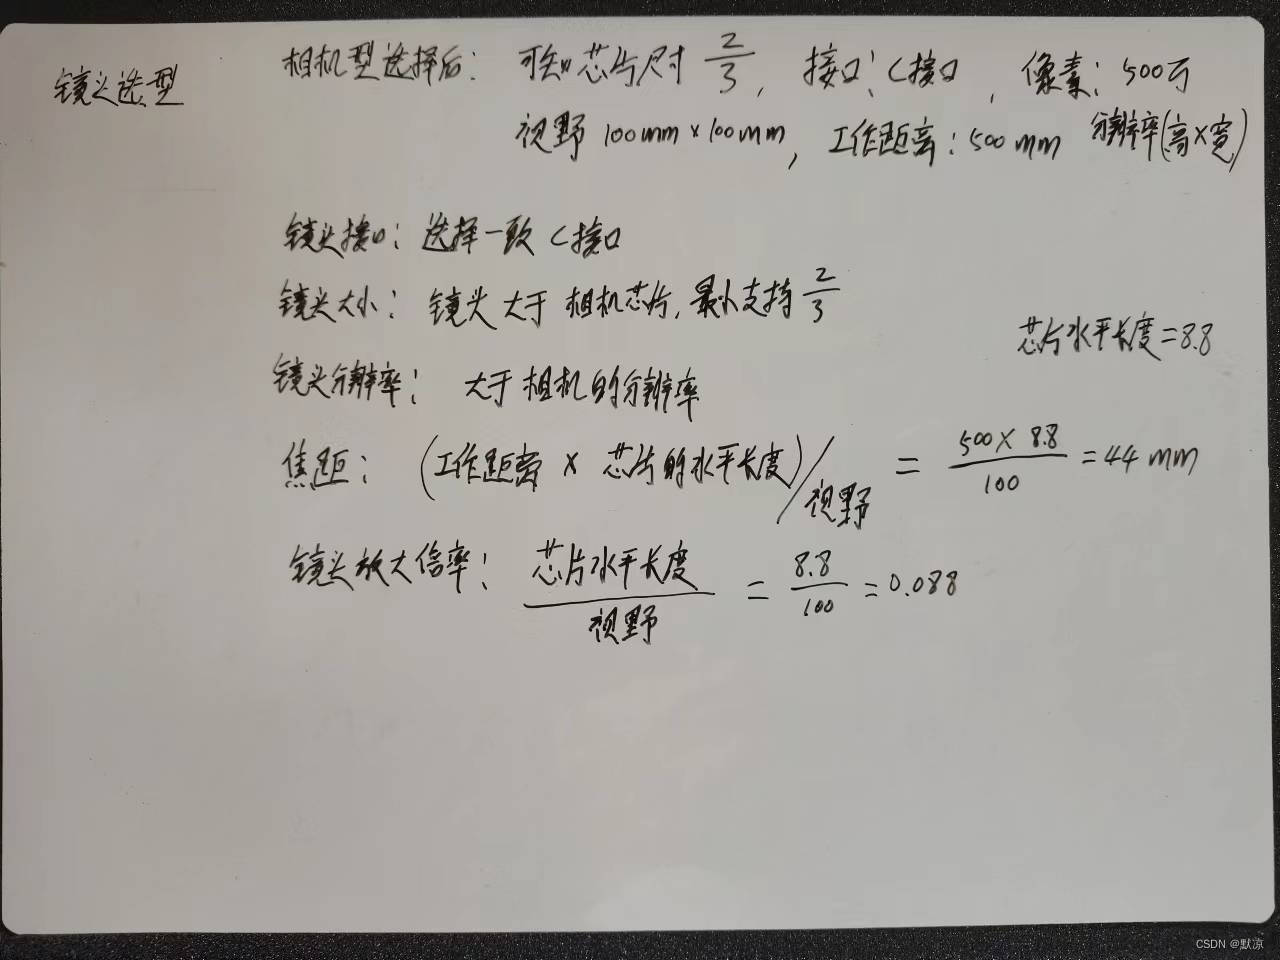 镜头选型
相机型选择后: 可知芯片尺寸 2/3, 接口: C接口, 像素: 500万
视野 100mm×100mm, 工作距离: 500mm 分辨率(高×宽)
镜头接口: 选择一致 C接口
镜头大小: 镜头大于相机芯片, 最小支持 2/3
芯片水平长度=8.8
镜头分辨率: 大于相机的分辨率
焦距: (工作距离 × 芯片的水平长度)/视野 = 500×8.8/100 = 44mm
镜头放大倍率: 芯片水平长度/视野 = 8.8/100 = 0.088
CSDN @默凉